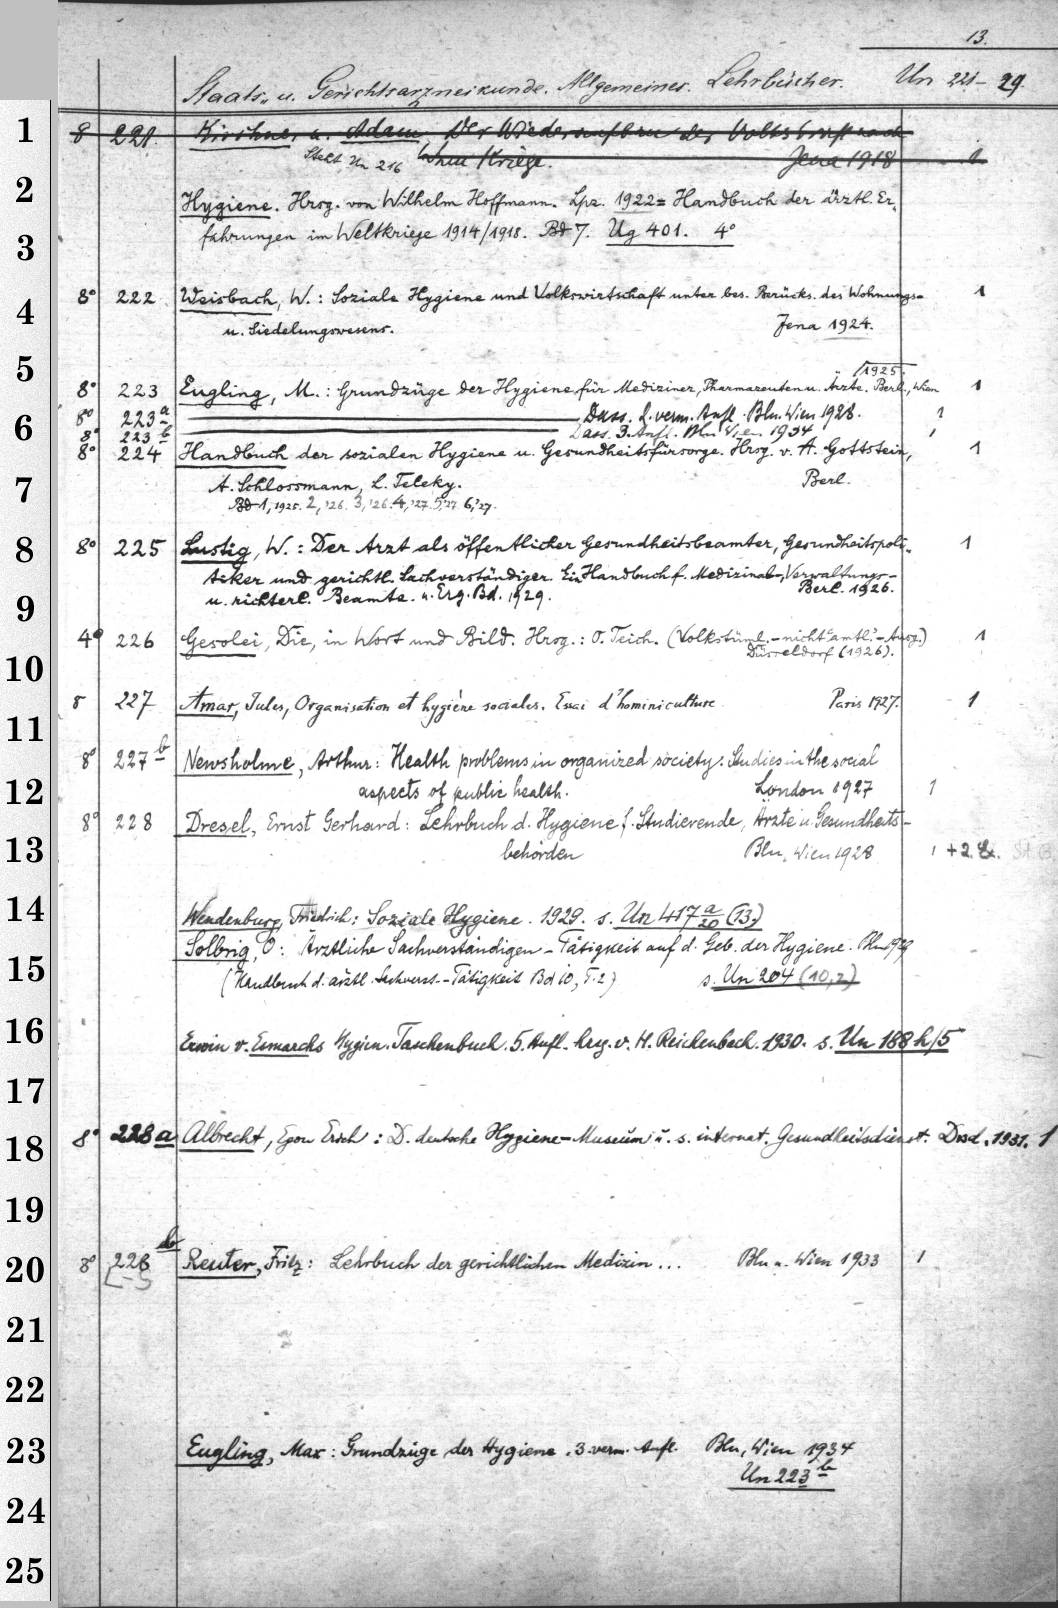 13.
Staats- u. Gerichtsarzneikunde. Allgemeines. Lehrbücher. Un 221–29.
1
8 221. Kirchner, u. Adam Der Wiederaufbau der Volkskraft nach
Steht Un 216 dem Kriege. Jena 1918 1
2
Hygiene. Hrsg. von Wilhelm Hoffmann. Lpz. 1922 = Handbuch der ärztl. Er-
3
fahrungen im Weltkriege 1914/1918. Bd 7. Ug 401. 4°
8° 222 Weisbach, W.: Soziale Hygiene und Volkswirtschaft unter bes. Berücks. des Wohnungs- 1
4
u. Siedelungswesens. Jena 1924.
5
1925.
8° 223 Eugling, M.: Grundzüge der Hygiene für Mediziner, Pharmazeuten u. Ärzte. Berl., Wien 1
6
8° 223a Dass. 2. verm. Aufl. Bln. Wien 1928. 1
8° 223b Dass. 3. Aufl. Bln Wien 1934 1
8° 224 Handbuch der sozialen Hygiene u. Gesundheitsfürsorge. Hrsg. v. A. Gottstein, 1
7
A. Schlossmann, L. Teleky. Berl.
Bd 1, 1925. 2, '26. 3, '26. 4, '27. 5, '27. 6, '27.
8
8° 225 Lustig, W.: Der Arzt als öffentlicher Gesundheitsbeamter, Gesundheitspoli- 1
tiker und gerichtl. Sachverständiger. Ein Handbuch f. Medizinal-, Verwaltungs-
9
u. richterl. Beamte. u. Erg. Bd. 1929. Berl. 1926.
4° 226 Gesolei, Die, in Wort und Bild. Hrsg.: O. Teich. (Volkstüml. - nicht "amtl." - Ausg.) 1
10
Düsseldorf (1926).
8 227 Amar, Jules, Organisation et hygiène sociales. Essai d'hominiculture Paris 1927. 1
11
8° 227b Newsholme, Arthur: Health problems in organized society. Studies in the social
12
aspects of public health. London 1927 1
8° 228 Dresel, Ernst Gerhard: Lehrbuch d. Hygiene f. Studierende, Ärzte u. Gesundheits-
13
behörden Bln, Wien 1928 1 + 2.
14
Wendenburg, Friedrich: Soziale Hygiene. 1929. s. Un 417 a/20 (13)
Solbrig, O: Ärztliche Sachverständigen-Tätigkeit auf d. Geb. der Hygiene. Bln 1929
15
(Handbuch d. ärztl. Sachverst.-Tätigkeit Bd 10, T. 2) s. Un 204 (10,2)
16
Erwin v. Esmarchs Hygien. Taschenbuch. 5. Aufl. hrsg. v. H. Reichenbach. 1930. s. Un 188 h/5
17
18
8° 228a Albrecht, Egon Erich: D. deutsche Hygiene-Museum u. s. internat. Gesundheitsdienst. Drsd. 1931. 1
19
20
8° 228b Reuter, Fritz: Lehrbuch der gerichtlichen Medizin ... Bln u. Wien 1933 1
21
22
23
Eugling, Max: Grundzüge der Hygiene. 3. verm. Aufl. Bln, Wien 1934
Un 223b
24
25